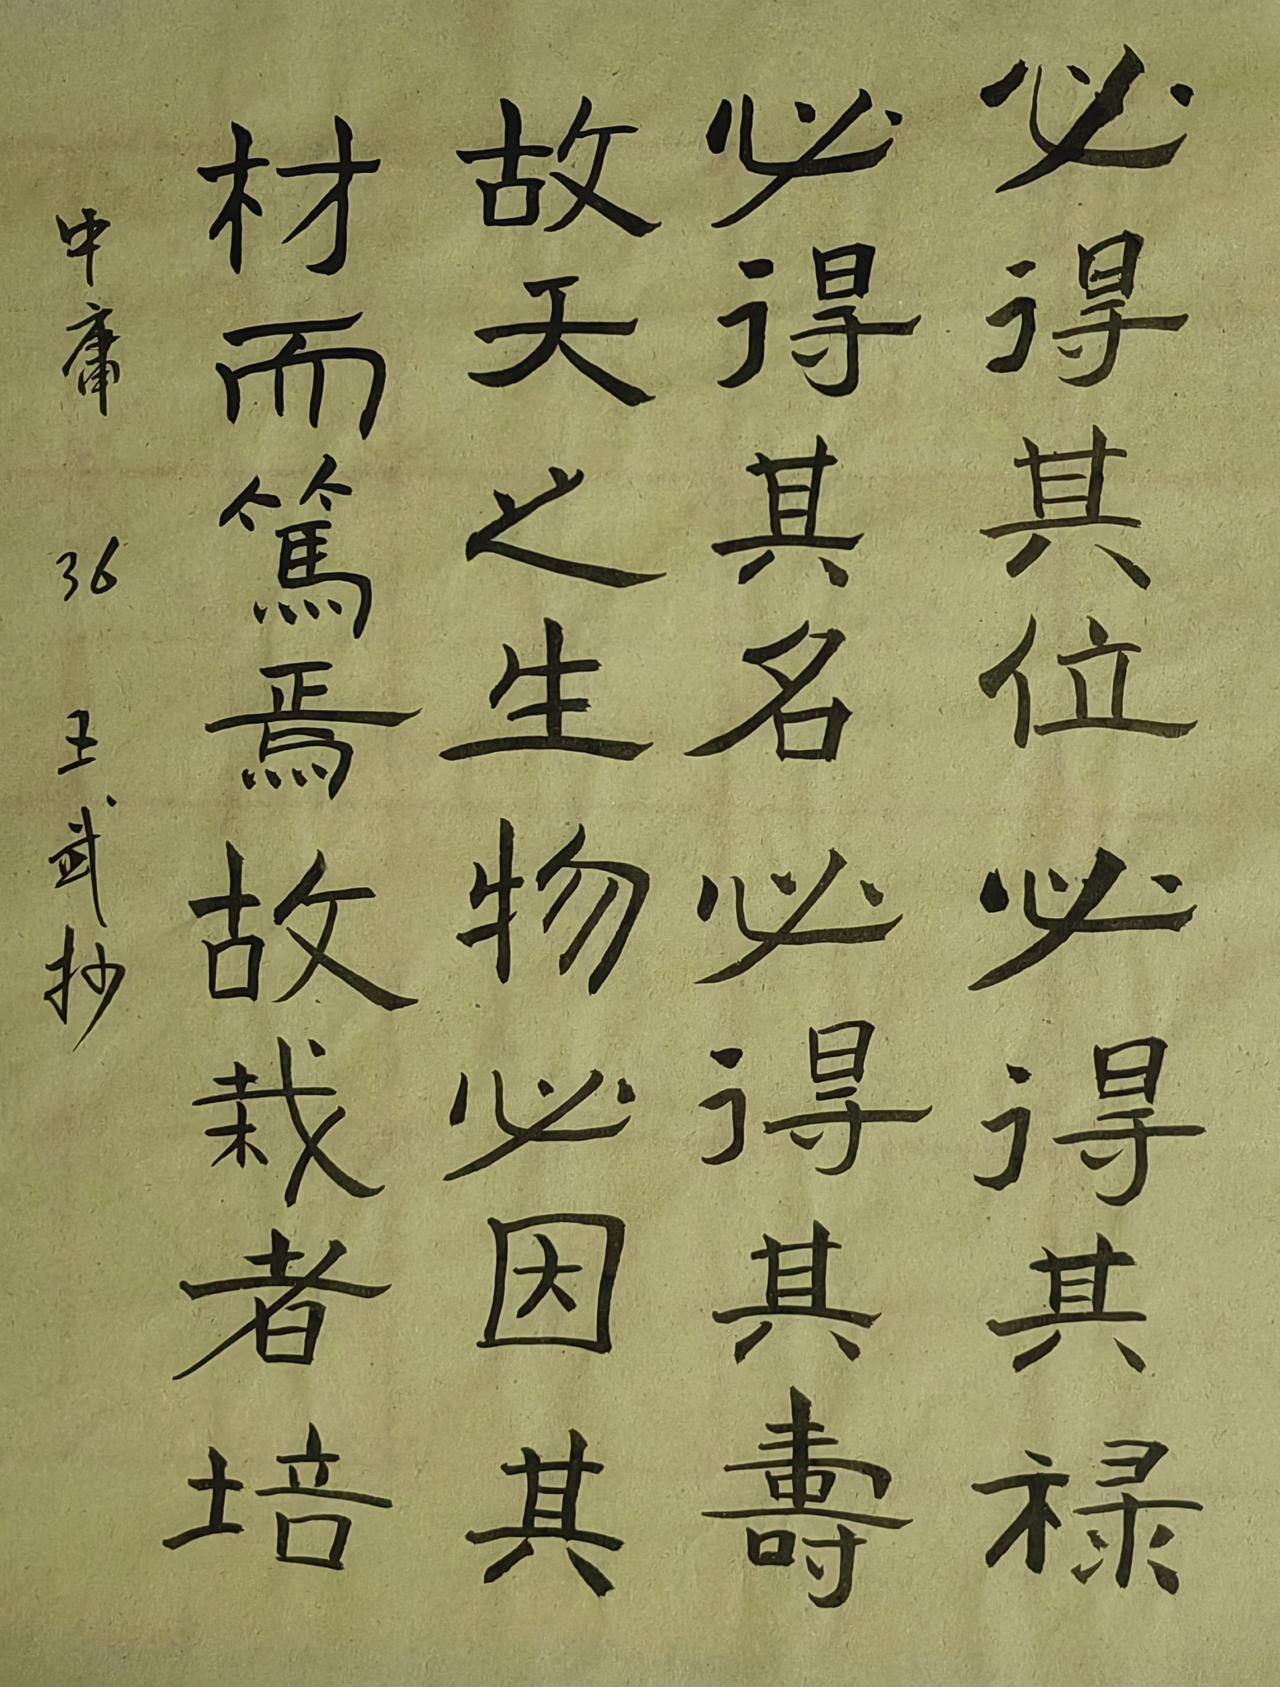 必得其位必得其禄
必得其名必得其壽
故天之生物必因其
材而篤焉故栽者培
中庸 36 王武抄